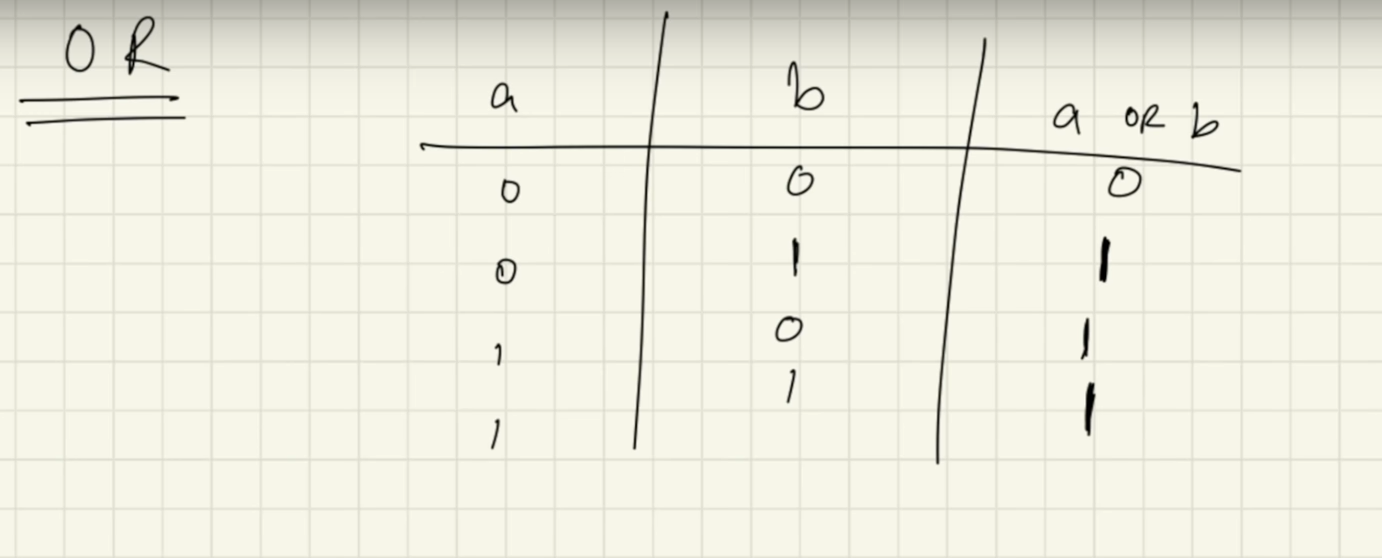 OR
a b a OR b
0 0 0
0 1 1
1 0 1
1 1 1